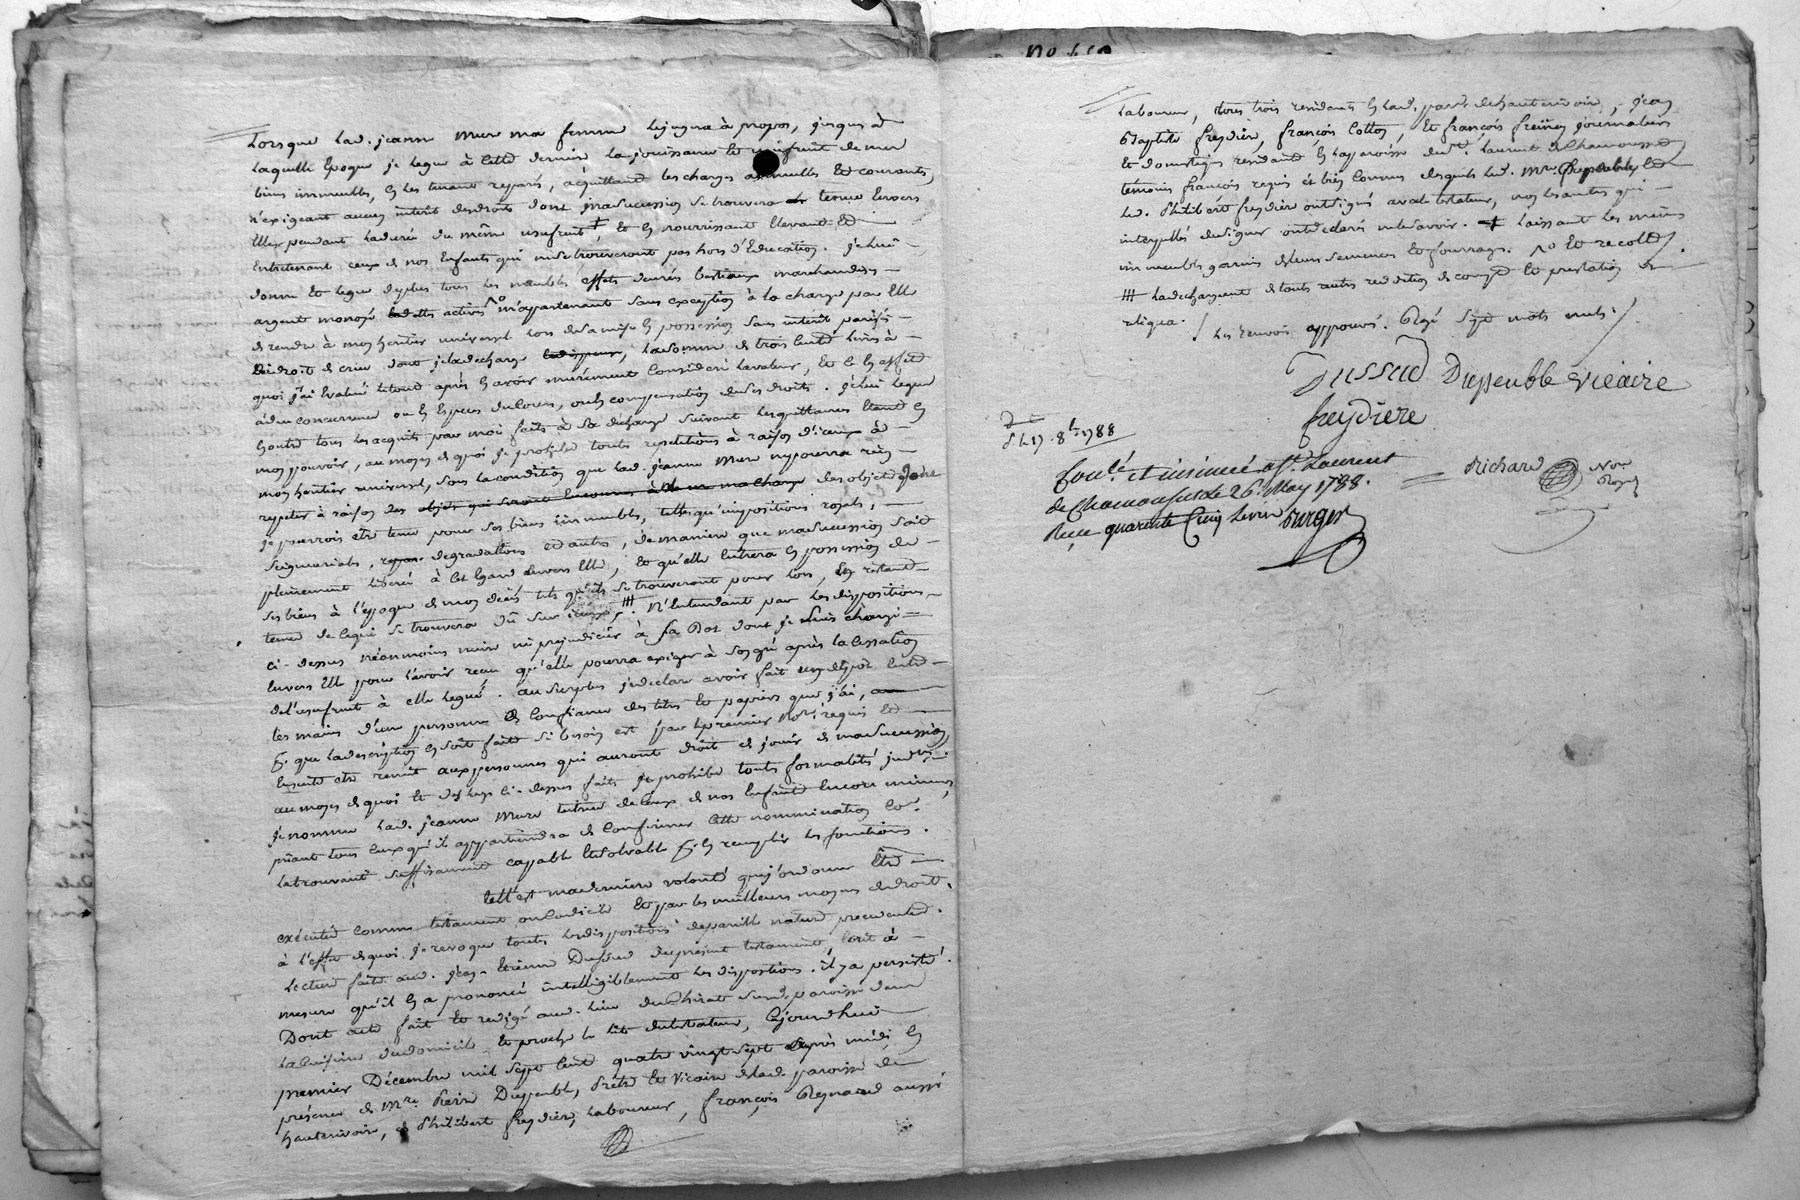 Lorsque lad. jeanne Mure ma femme le jugera à propos, jusques à
laquelle Epoque je legue à cette derniere la jouissance et usufruit de mes
biens immeubles, en les tenant reparés, acquittant les charges annuelles et courantes,
n'exigeant aucun interêt des droits dont ma succession se trouvera tenue Envers
Elle pendant la durée du même usufruit, et en nourrissant Elevant et
Entretenant ceux de nos Enfants qui ne se trouveront pas hors d'Education. je lui
donne et legue de plus tous les meubles effets denrés bestiaux marchandises
argent monoyé actives m'appartenant sans exception à la charge par Elle
de rendre à mon heritier universel lors de sa mise en possession sans interêt
droit de crue dont je la decharge, la somme de trois cent livres à
quoi j'ai Evalué le tout après en avoir murement consideré la valeur, et ce en effets
à due concurrence ou en Especes de cours, ou en compensation de ses droits. je lui legue
En outre tous les acquits par moi faits à sa decharge suivant les quittances Etant en
mon pouvoir, au moyen de quoi je prohibe toute repetitions à raison d'iceux à
mon heritier universel, sous la condition que lad. jeanne Mure ne pourra rien
repeter à raison des objets dont
je pourrois etre tenu pour ses biens immeubles, telles qu'impositions royales,
seigneuriales, degradations et autres, de maniere que ma succession soit
pleinement liberée à cet Egard Envers Elle, et qu'elle Entrera en possession de
ses biens à l'Epoque de mon decès tels qu'ils se trouveront pour lors, et restant
tenue de ce qui se trouvera dû sur iceux. N'Entendant par les dispositions
ci-dessus néanmoins nuire ni prejudicier à sa Dot dont je suis chargé
Envers Elle pour l'avoir reçu qu'elle pourra exiger à son gré après la cessation
de l'usufruit à elle legué. au surplus je declare avoir fait un depôt Entre
les mains d'une personne de confiance des titres et papiers que j'ai,
que la description en soit faite si besoin est par le premier Not. requis et
Ensuite etre remis aux personnes qui auront droit de jouir de ma succession,
au moyen de quoi et des legs ci-dessus faits je prohibe toutes formalités
je nomme lad. jeanne Mure tutrice de ceux de nos Enfants Encore mineurs,
priant tous ceux qu'il appartiendra de confirmer cette nommination
la trouvant suffisamment cappable et solvable en remplir les fonctions.
telle est ma derniere volonté que j'ordonne Etre
exécutée comme testament ou codicile et par les meilleurs moyens de droit,
à l'effet de quoi je revoque toutes les dispositions de pareille nature precedentes.
Lecture faite aud. jean-Etienne Dussud du présent testament, Ecrit à
mesure qu'il en a prononcé intelligiblement les dispositions, il y a persisté.
Dont acte fait et redigé aud. lieu du Chirat sus d. paroisse dans
la cuisine du domicile et proche le lit du testateur, Cejourd'hui
premier Décembre mil sept cent quatre vingt sept après midi, en
présence de Mre. Pierre Dupeuble, Prêtre et Vicaire de lad. paroisse de
hauterivoire, Philibert freydiere laboureur, françois Reynard aussi
laboureur, tous trois residants en lad. par. de hauterivoire, jean
Baptiste freydiere, françois Cottes, et françois journaliers
et domestiques residants en la paroisse de St. Laurent de Chamousset,
temoins françois requis et bien connus desquels led. Mre. Dupeuble et
led. Philibert freydiere ont signé avec le testateur, non les autres qui
interpellés de signer ont declaré ne le savoir. + laissant les mêmes
immeubles garnis de leurs semences et fourrages. Nº et recoltes.
la dechargeant de toutes autres reddition de compte et prestation de
reliqua. / Les renvois approuvés. Rayé sept mots nuls. /
Dussud Dupeuble vicaire
freydiere
Richard Nore Royal
17. 8bre 1788
Conlé. et insinué à St. Laurent
de Chamousset le 26. May 1788.
Reçu quarente Cinq Livres Durger